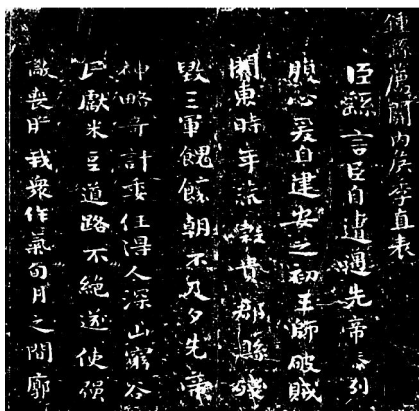 鍾繇薦關内侯季直表
臣繇言臣自遭遇先帝忝列
腹心爰自建安之初王師破賊
關東時年荒穀貴郡縣殘
毀三軍餽饟朝不及夕先帝
神略奇計委任得人深山窮谷
民獻米豆道路不絕遂使强
敵喪膽我衆作氣旬月之間廓